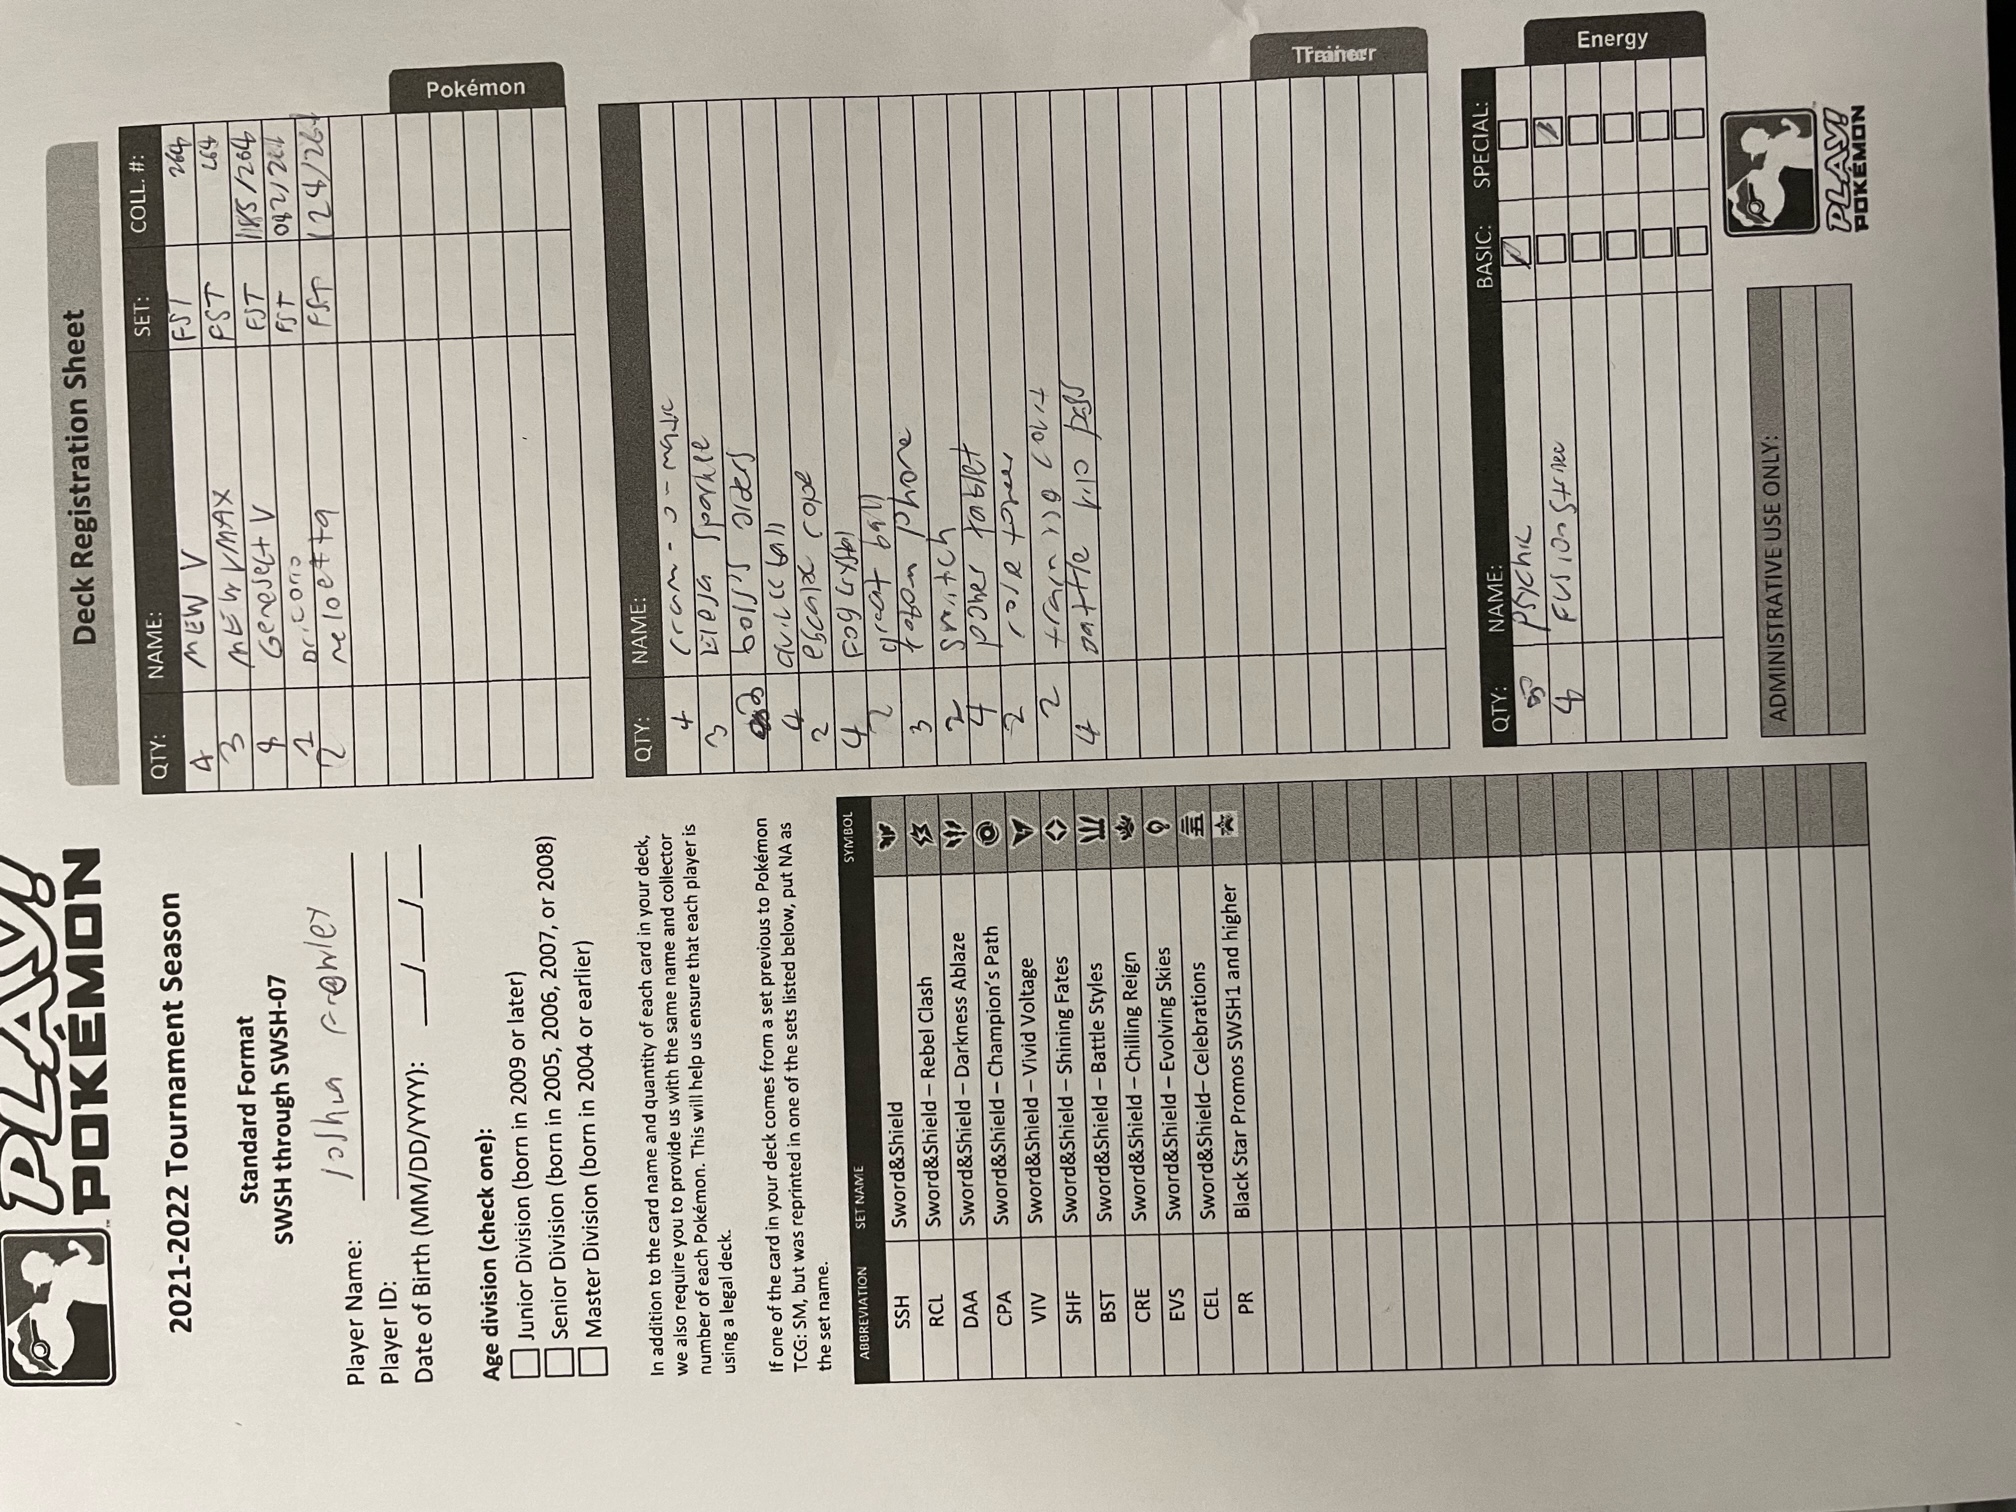 PLAY!
POKÉMON
2021-2022 Tournament Season
Standard Format
SWSH through SWSH-07
Player Name: Joshua
Player ID:
Date of Birth (MM/DD/YYYY): __/__/__
Age division (check one):
Junior Division (born in 2009 or later)
Senior Division (born in 2005, 2006, 2007, or 2008)
Master Division (born in 2004 or earlier)
In addition to the card name and quantity of each card in your deck,
we also require you to provide us with the same name and collector
number of each Pokémon. This will help us ensure that each player is
using a legal deck.
If one of the card in your deck comes from a set previous to Pokémon
TCG: SM, but was reprinted in one of the sets listed below, put NA as
the set name.
ABBREVIATION SET NAME SYMBOL
SSH Sword&Shield
RCL Sword&Shield – Rebel Clash
DAA Sword&Shield – Darkness Ablaze
CPA Sword&Shield – Champion's Path
VIV Sword&Shield – Vivid Voltage
SHF Sword&Shield – Shining Fates
BST Sword&Shield – Battle Styles
CRE Sword&Shield – Chilling Reign
EVS Sword&Shield – Evolving Skies
CEL Sword&Shield– Celebrations
PR Black Star Promos SWSH1 and higher
Deck Registration Sheet
QTY: NAME: SET: COLL. #:
4 MEW V FST 264
3 MEW VMAX FST 264
Genesect V FST 185/264
1 FST
2 meloetta FST 124/264
Pokémon
QTY: NAME:
4 cram-o-matic
3 Elesa sparkle
boss's orders
4 quick ball
2 escape rope
4 Fog crystal
2 great ball
3 rotom phone
2 switch
4 power tablet
2
2 training court
4 battle vip pass
Trainer
QTY: NAME: BASIC: SPECIAL:
psychic
4 Fusion Strike
Energy
ADMINISTRATIVE USE ONLY:
PLAY!
POKÉMON